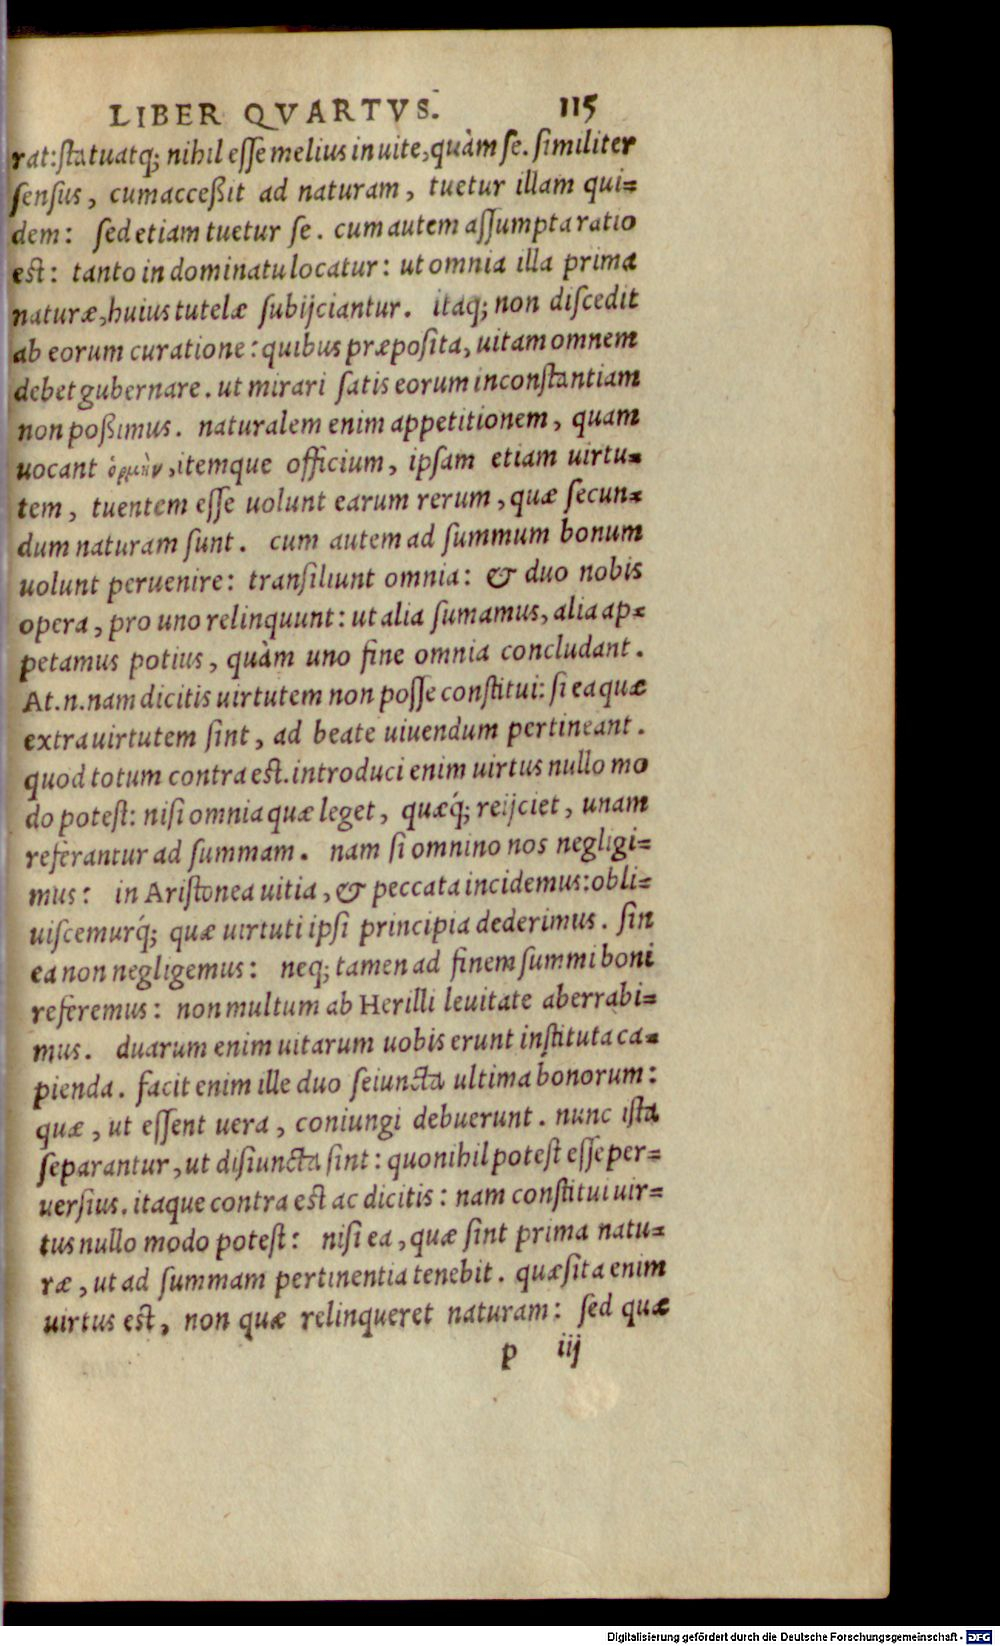 LIBER QVARTVS. 115
rat: ſtatuatq; nihil eſſe melius in uite, quàm ſe. ſimiliter
ſenſus, cum acceßit ad naturam, tuetur illam qui=
dem: ſed etiam tuetur ſe. cum autem aſſumpta ratio
est: tanto in dominatu locatur: ut omnia illa prima
naturæ, huius tutelæ ſubijciantur. itaq; non diſcedit
ab eorum curatione: quibus præpoſita, uitam omnem
debet gubernare. ut mirari ſatis eorum inconſtantiam
non poßimus. naturalem enim appetitionem, quam
uocant ὁρμὴν, itemque officium, ipſam etiam uirtu=
tem, tuentem eſſe uolunt earum rerum, quæ ſecun=
dum naturam ſunt. cum autem ad ſummum bonum
uolunt peruenire: tranſiliunt omnia: & duo nobis
opera, pro uno relinquunt: ut alia ſumamus, alia ap=
petamus potius, quàm uno fine omnia concludant.
At.n.nam dicitis uirtutem non poſſe conſtitui: ſi ea quæ
extra uirtutem ſint, ad beate uiuendum pertineant.
quod totum contra est. introduci enim uirtus nullo mo
do poteſt: niſi omnia quæ leget, quæq́; reijciet, unam
referantur ad ſummam. nam ſi omnino nos negligi=
mus: in Ariſtonea uitia, & peccata incidemus: obli=
uiſcemurq́; quæ uirtuti ipſi principia dederimus. ſin
ea non negligemus: neq; tamen ad finem ſummi boni
referemus: non multum ab Herilli leuitate aberrabi=
mus. duarum enim uitarum uobis erunt inſtituta ca=
pienda. facit enim ille duo ſeiuncta ultima bonorum:
quæ, ut eſſent uera, coniungi debuerunt. nunc iſta
ſeparantur, ut diſiuncta ſint: quo nihil poteſt eſſe per=
uerſius. itaque contra est ac dicitis: nam conſtitui uir=
tus nullo modo poteſt: niſi ea, quæ ſint prima natu=
ræ, ut ad ſummam pertinentia tenebit. quæſita enim
uirtus est, non quæ relinqueret naturam: ſed quæ
p iij
Digitalisierung gefördert durch die Deutsche Forschungsgemeinschaft - DFG